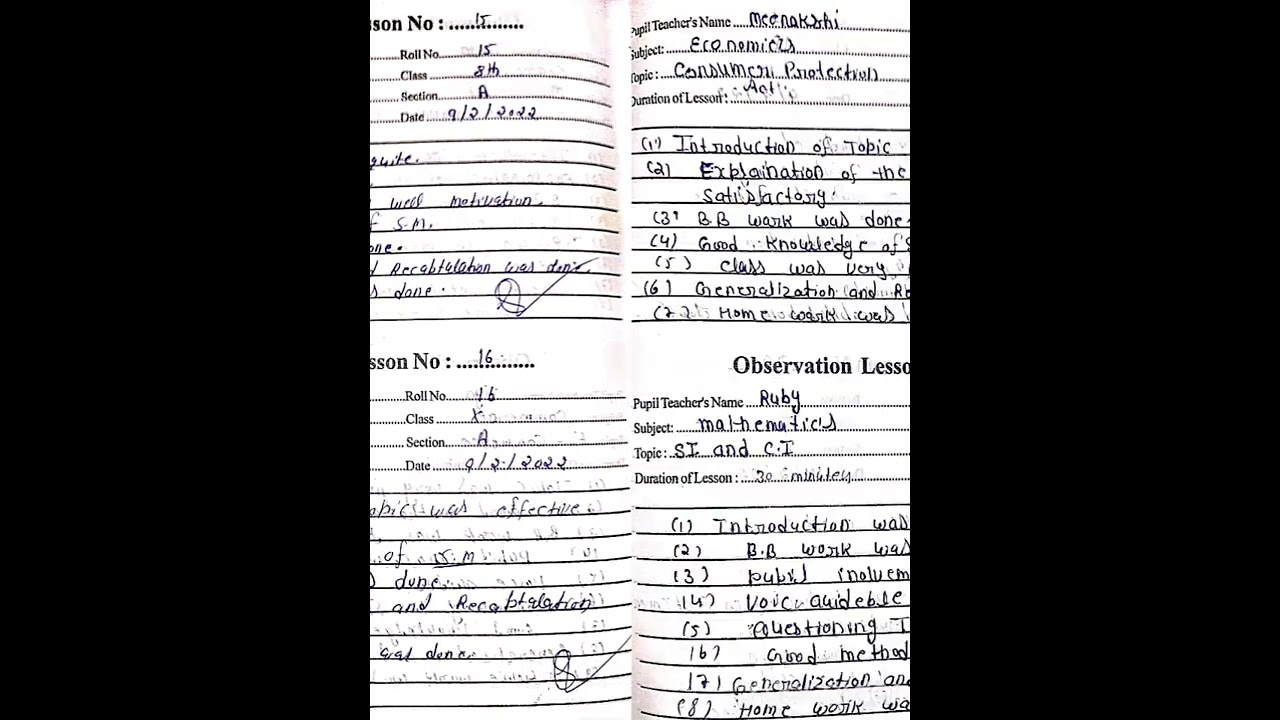 sson No : 15
Roll No. 15
Class 8th
Section A
Date 9/2/2022
quite.
well motivation.
f S.M.
one.
d Recabtulation was done.
s done.
sson No : 16
Roll No. 16
Class X
Section A
Date 9/2/2022
opic was effective.
of S.M
s done.
and Recabtulation
was done.
Pupil Teacher's Name Meenakshi
Subject: Economics
Topic: Consumer Protection
Act.
Duration of Lesson:
(1) Introduction of Topic
(2) Explaination of the
satisfactory.
(3) B.B work was done
(4) Good Knowledge of S
(5) class was very
(6) Generalization and Re
(7) Home work was
Observation Lesso
Pupil Teacher's Name Ruby
Subject: mathematics
Topic: S.I and C.I
Duration of Lesson: 30 minutes
(1) Introduction was
(2) B.B work was
(3) pupil inolvem
(4) Voice auideble
(5) Questioning T
(6) Good method
(7) Generalization and
(8) Home work wa